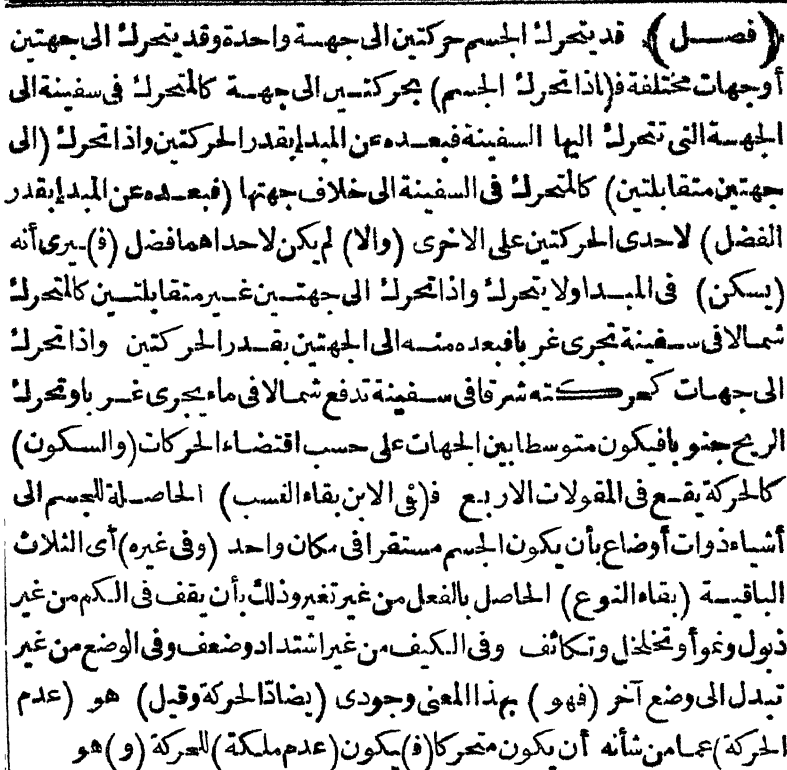 ﴿ فصــل ﴾ قد يتحرك الجسم حركتين الى جهة واحدة وقد يتحرك الى جهتين
أوجهات مختلفة ف(اذا تحرك الجسم) بحركتين الى جهة كالمتحرك فى سفينة الى
الجهة التى تتحرك اليها السفينة فبعده عن المبدإ بقدر الحركتين واذا تحرك (الى
جهتين متقابلتين) كالمتحرك فى السفينة الى خلاف جهتها (فبعده عن المبدإ بقدر
الفضل) لاحدى الحركتين على الاخرى (والا) لم يكن لاحداهما فضل (ف)يرى أنه
(يسكن) فى المبدا ولا يتحرك واذا تحرك الى جهتين غير متقابلتين كالمتحرك
شمالا فى سفينة تجرى غربا فبعده منه الى الجهتين بقدر الحركتين واذا تحرك
الى جهات كحركته شرقا فى سفينة تدفع شمالا فى ماء يجرى غربا وتحرك
الريح جنوبا فيكون متوسطا بين الجهات على حسب اقتضاء الحركات (والسكون)
كالحركة يقع فى المقولات الاربع ف(فى الاين بقاء النسب) الحاصلة للجسم الى
أشياء ذوات أوضاع بأن يكون الجسم مستقرا فى مكان واحد (وفى غيره) أى الثلاث
الباقية (بقاء النوع) الحاصل بالفعل من غير تغير وذلك بأن يقف فى الكم من غير
ذبول ونمو أو تخلخل وتكاثف وفى الكيف من غير اشتداد وضعف وفى الوضع من غير
تبدل الى وضع آخر (فهو) بهذا المعنى وجودى (يضاد الحركة وقيل) هو (عدم
الحركة) عما من شأنه أن يكون متحركا (ف)يكون (عدم ملكة) للحركة (و) هو